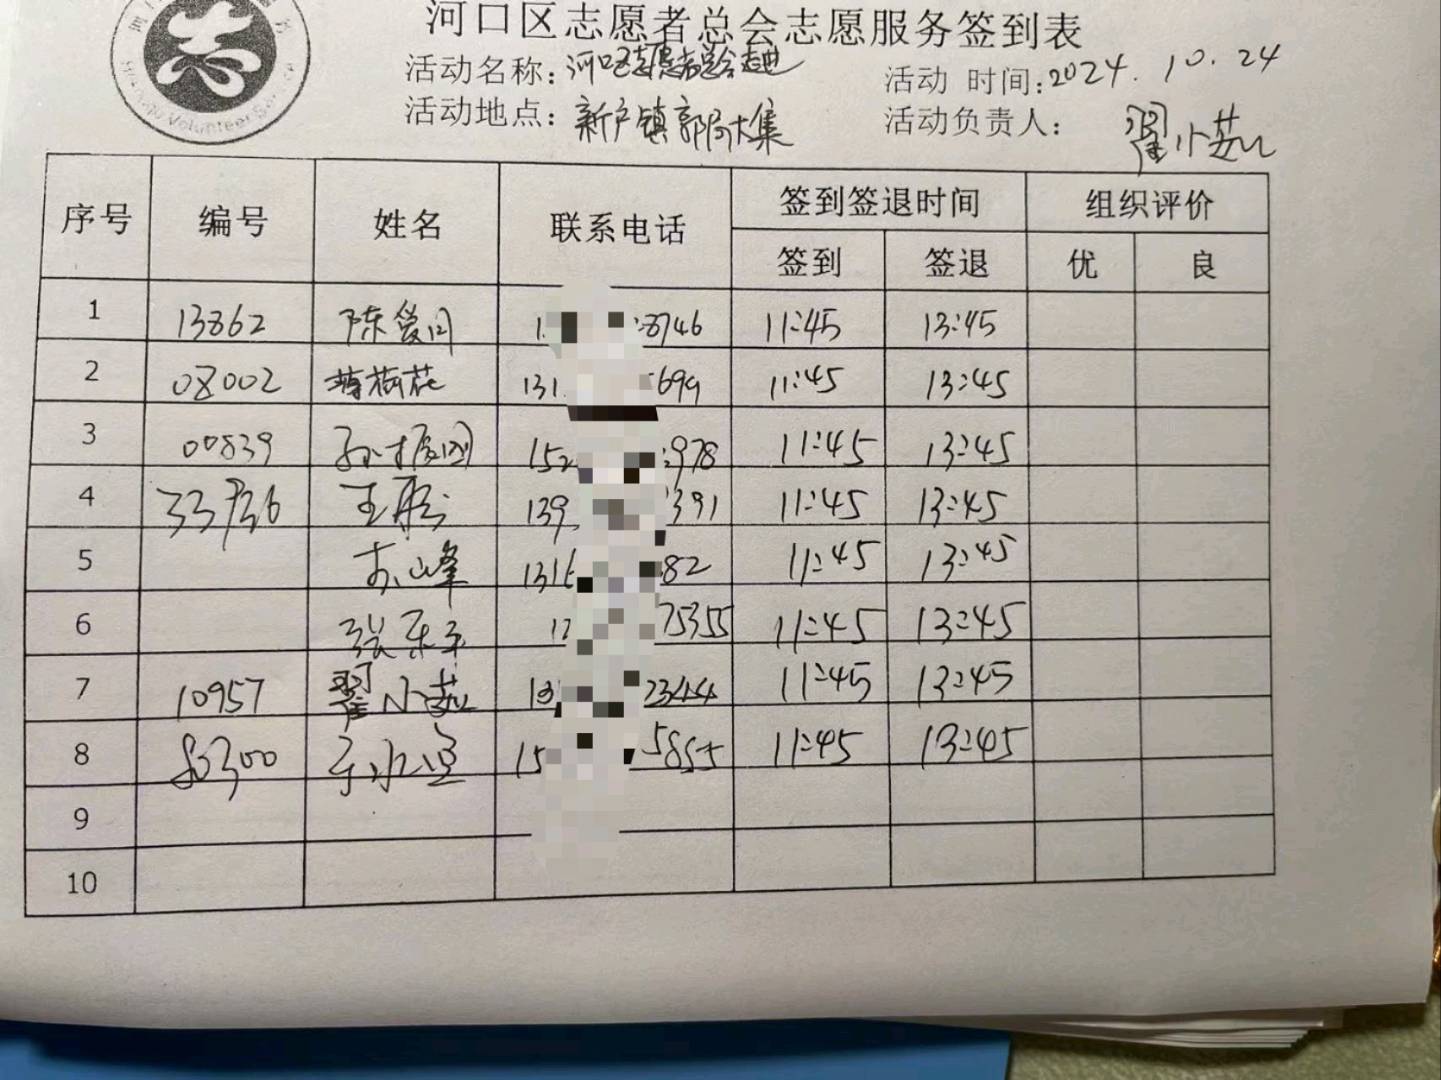 河口区志愿者总会志愿服务签到表
活动名称：河口区志愿者总会走进
活动 时间：2024.10.24
活动地点：新户镇郭局大集
活动负责人：翟小茹
序号 编号 姓名 联系电话 签到签退时间 组织评价
签到 签退 优 良
1 13862 陈爱 8746 11:45 13:45
2 08002 薄荷花 131 699 11:45 13:45
3 00839 孙振国 152 978 11:45 13:45
4 33936 王彤 139 391 11:45 13:45
5 峰 1316 82 11:45 13:45
6 张 75355 11:45 13:45
7 10957 翟小茹 2344 11:45 13:45
8 300 于水 15 5855 11:45 13:45
9
10
Volunteer